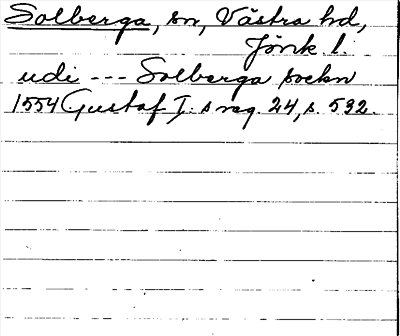 Solberga, sn, Västra hd,
Jönk. l.
udi --- Solberga sockn
1554 Gustaf I:s reg. 24, s. 532.